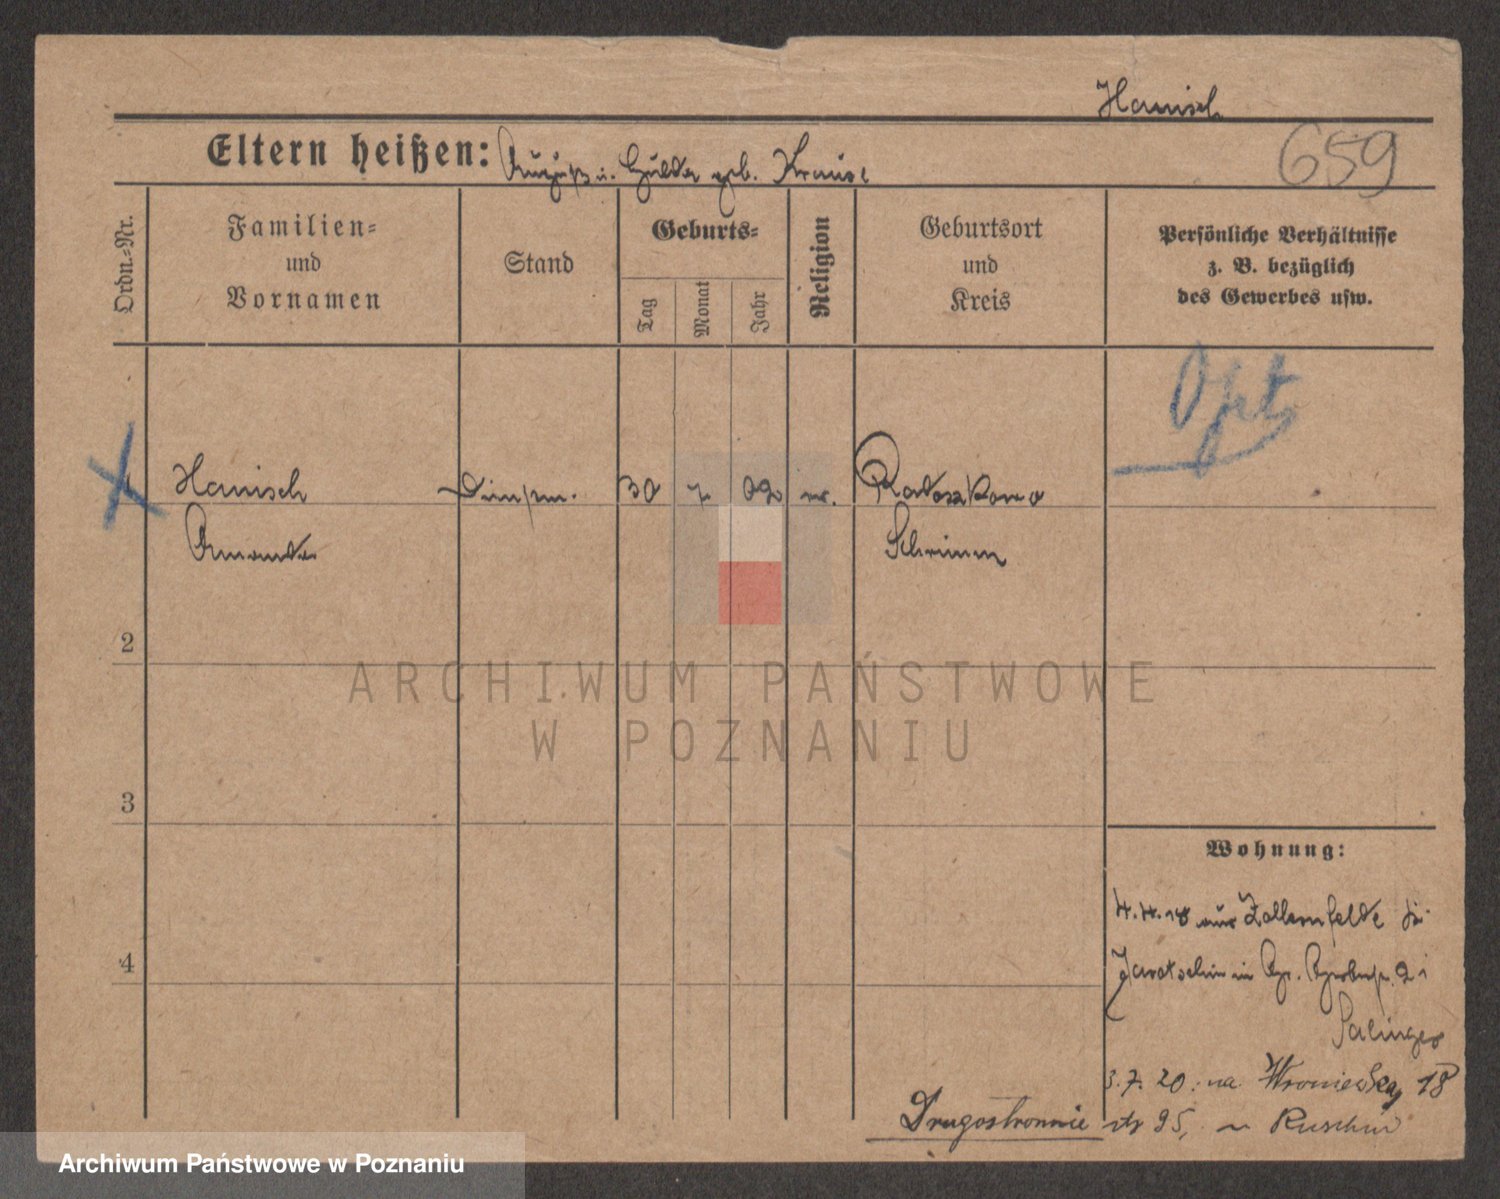 Hanisch
Eltern heißen: August u. Hulda geb. Krause
659
Ordn.-Nr.
Familien-
und
Vornamen
Stand
Geburts-
Tag
Monat
Jahr
Religion
Geburtsort
und
Kreis
Persönliche Verhältnisse
z. B. bezüglich
des Gewerbes usw.
Opt
1
Hanisch
30
7
ev.
Schrimm
2
ARCHIWUM PAŃSTWOWE
W POZNANIU
3
Wohnung:
4.4.18 aus Zollernfelde Kr.
4
Jarotschin in
Salinger
3.7.20. na Wroniecką 18
Drugostronnie str 95, Ruschin
Archiwum Państwowe w Poznaniu